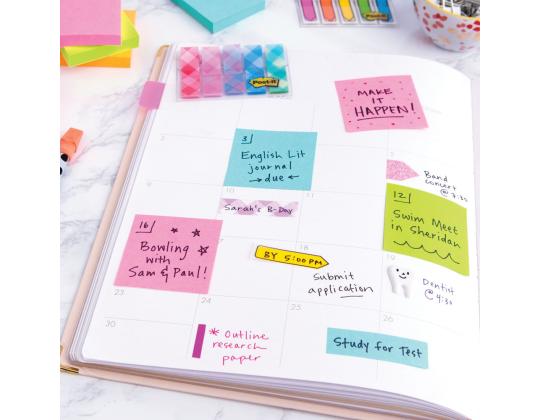 Post-it
Post-it
MAKE
IT
HAPPEN!
3
English Lit
journal
→due←
Band
concert
@ 7:30
9
10
Sarah's B-Day
12
Swim Meet
in Sheridan
16
Bowling
with
Sam & Paul!
BY 5:00PM
18
Submit
application
19
Dentist
@ 4:30
23
24
25
30
* Outline
research
paper
Study for Test